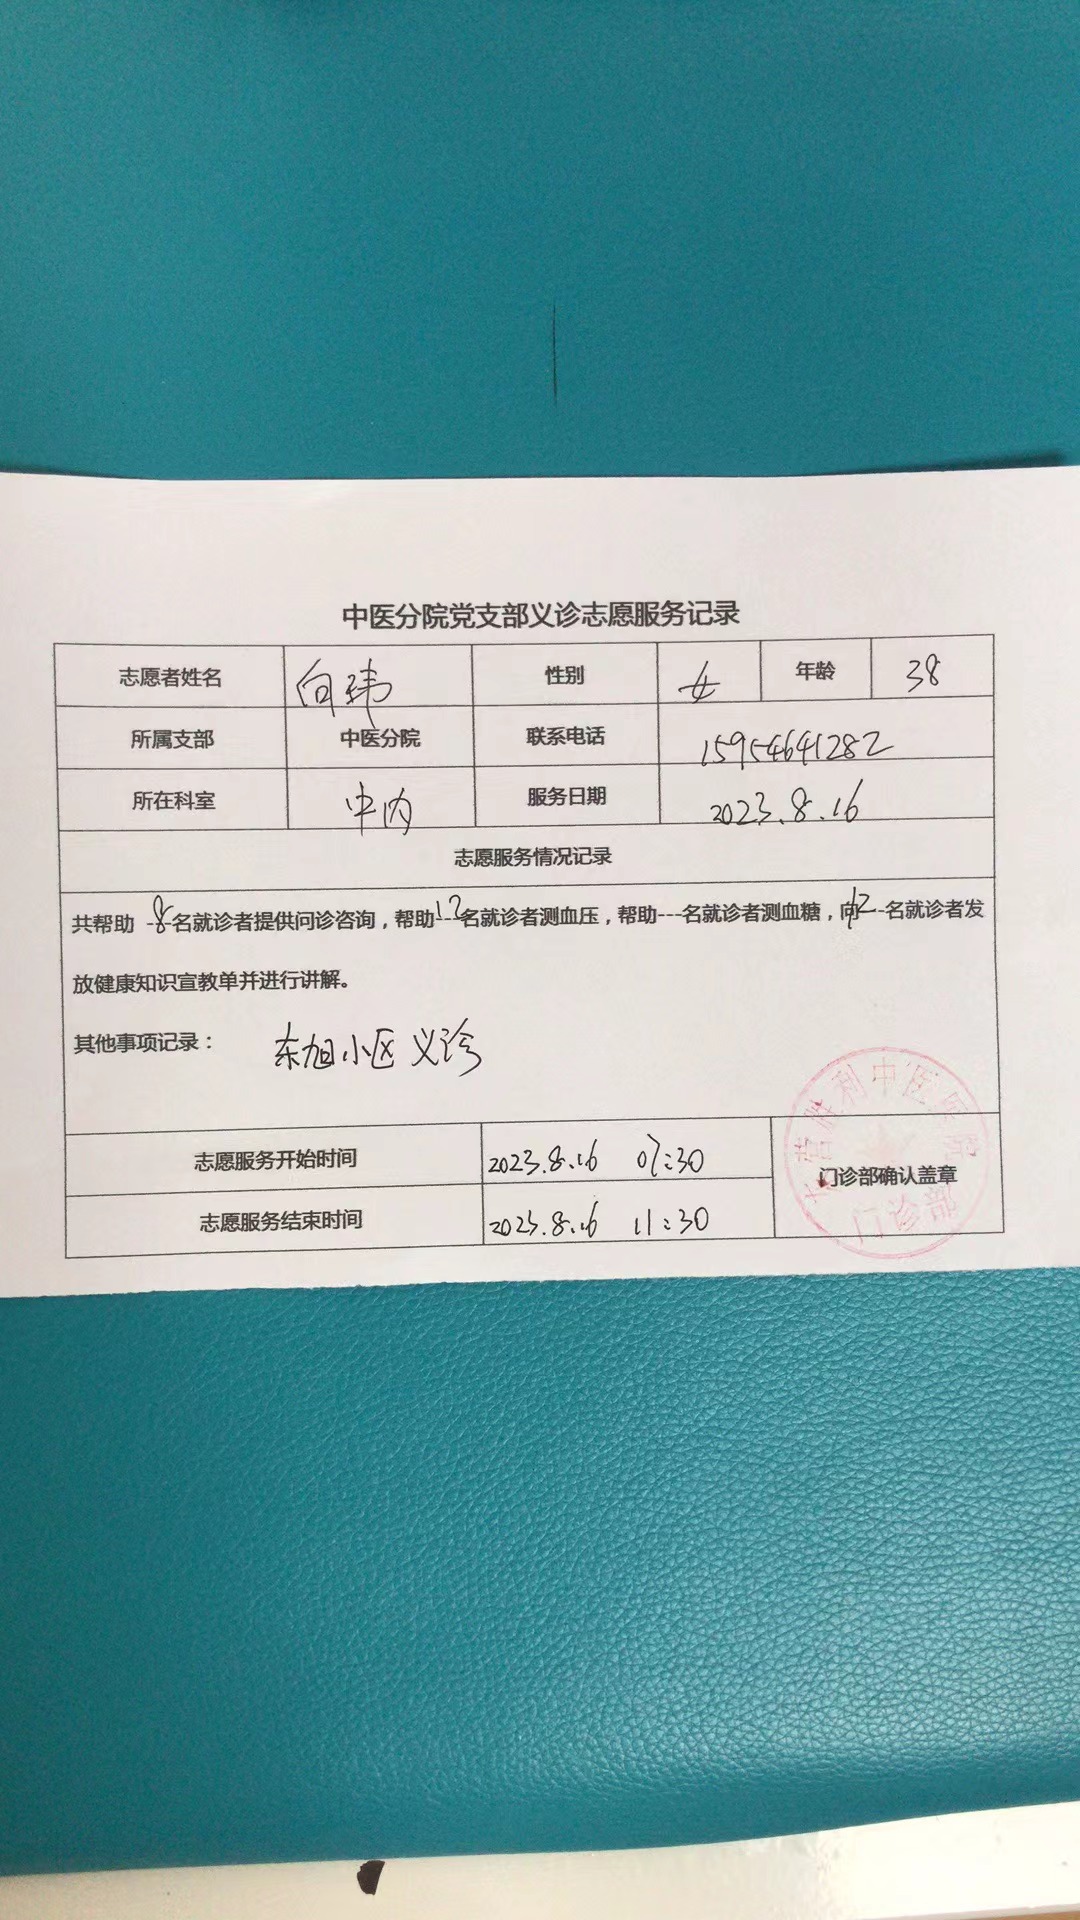 中医分院党支部义诊志愿服务记录
志愿者姓名 向玮 性别 女 年龄 38
所属支部 中医分院 联系电话 15954641282
所在科室 中内 服务日期 2023.8.16
志愿服务情况记录
共帮助 8 名就诊者提供问诊咨询，帮助12名就诊者测血压，帮助---名就诊者测血糖，向12-名就诊者发
放健康知识宣教单并进行讲解。
其他事项记录： 东旭小区义诊
志愿服务开始时间 2023.8.16 07:30
志愿服务结束时间 2023.8.16 11:30
门诊部确认盖章
东营胜利中医医院
门诊部